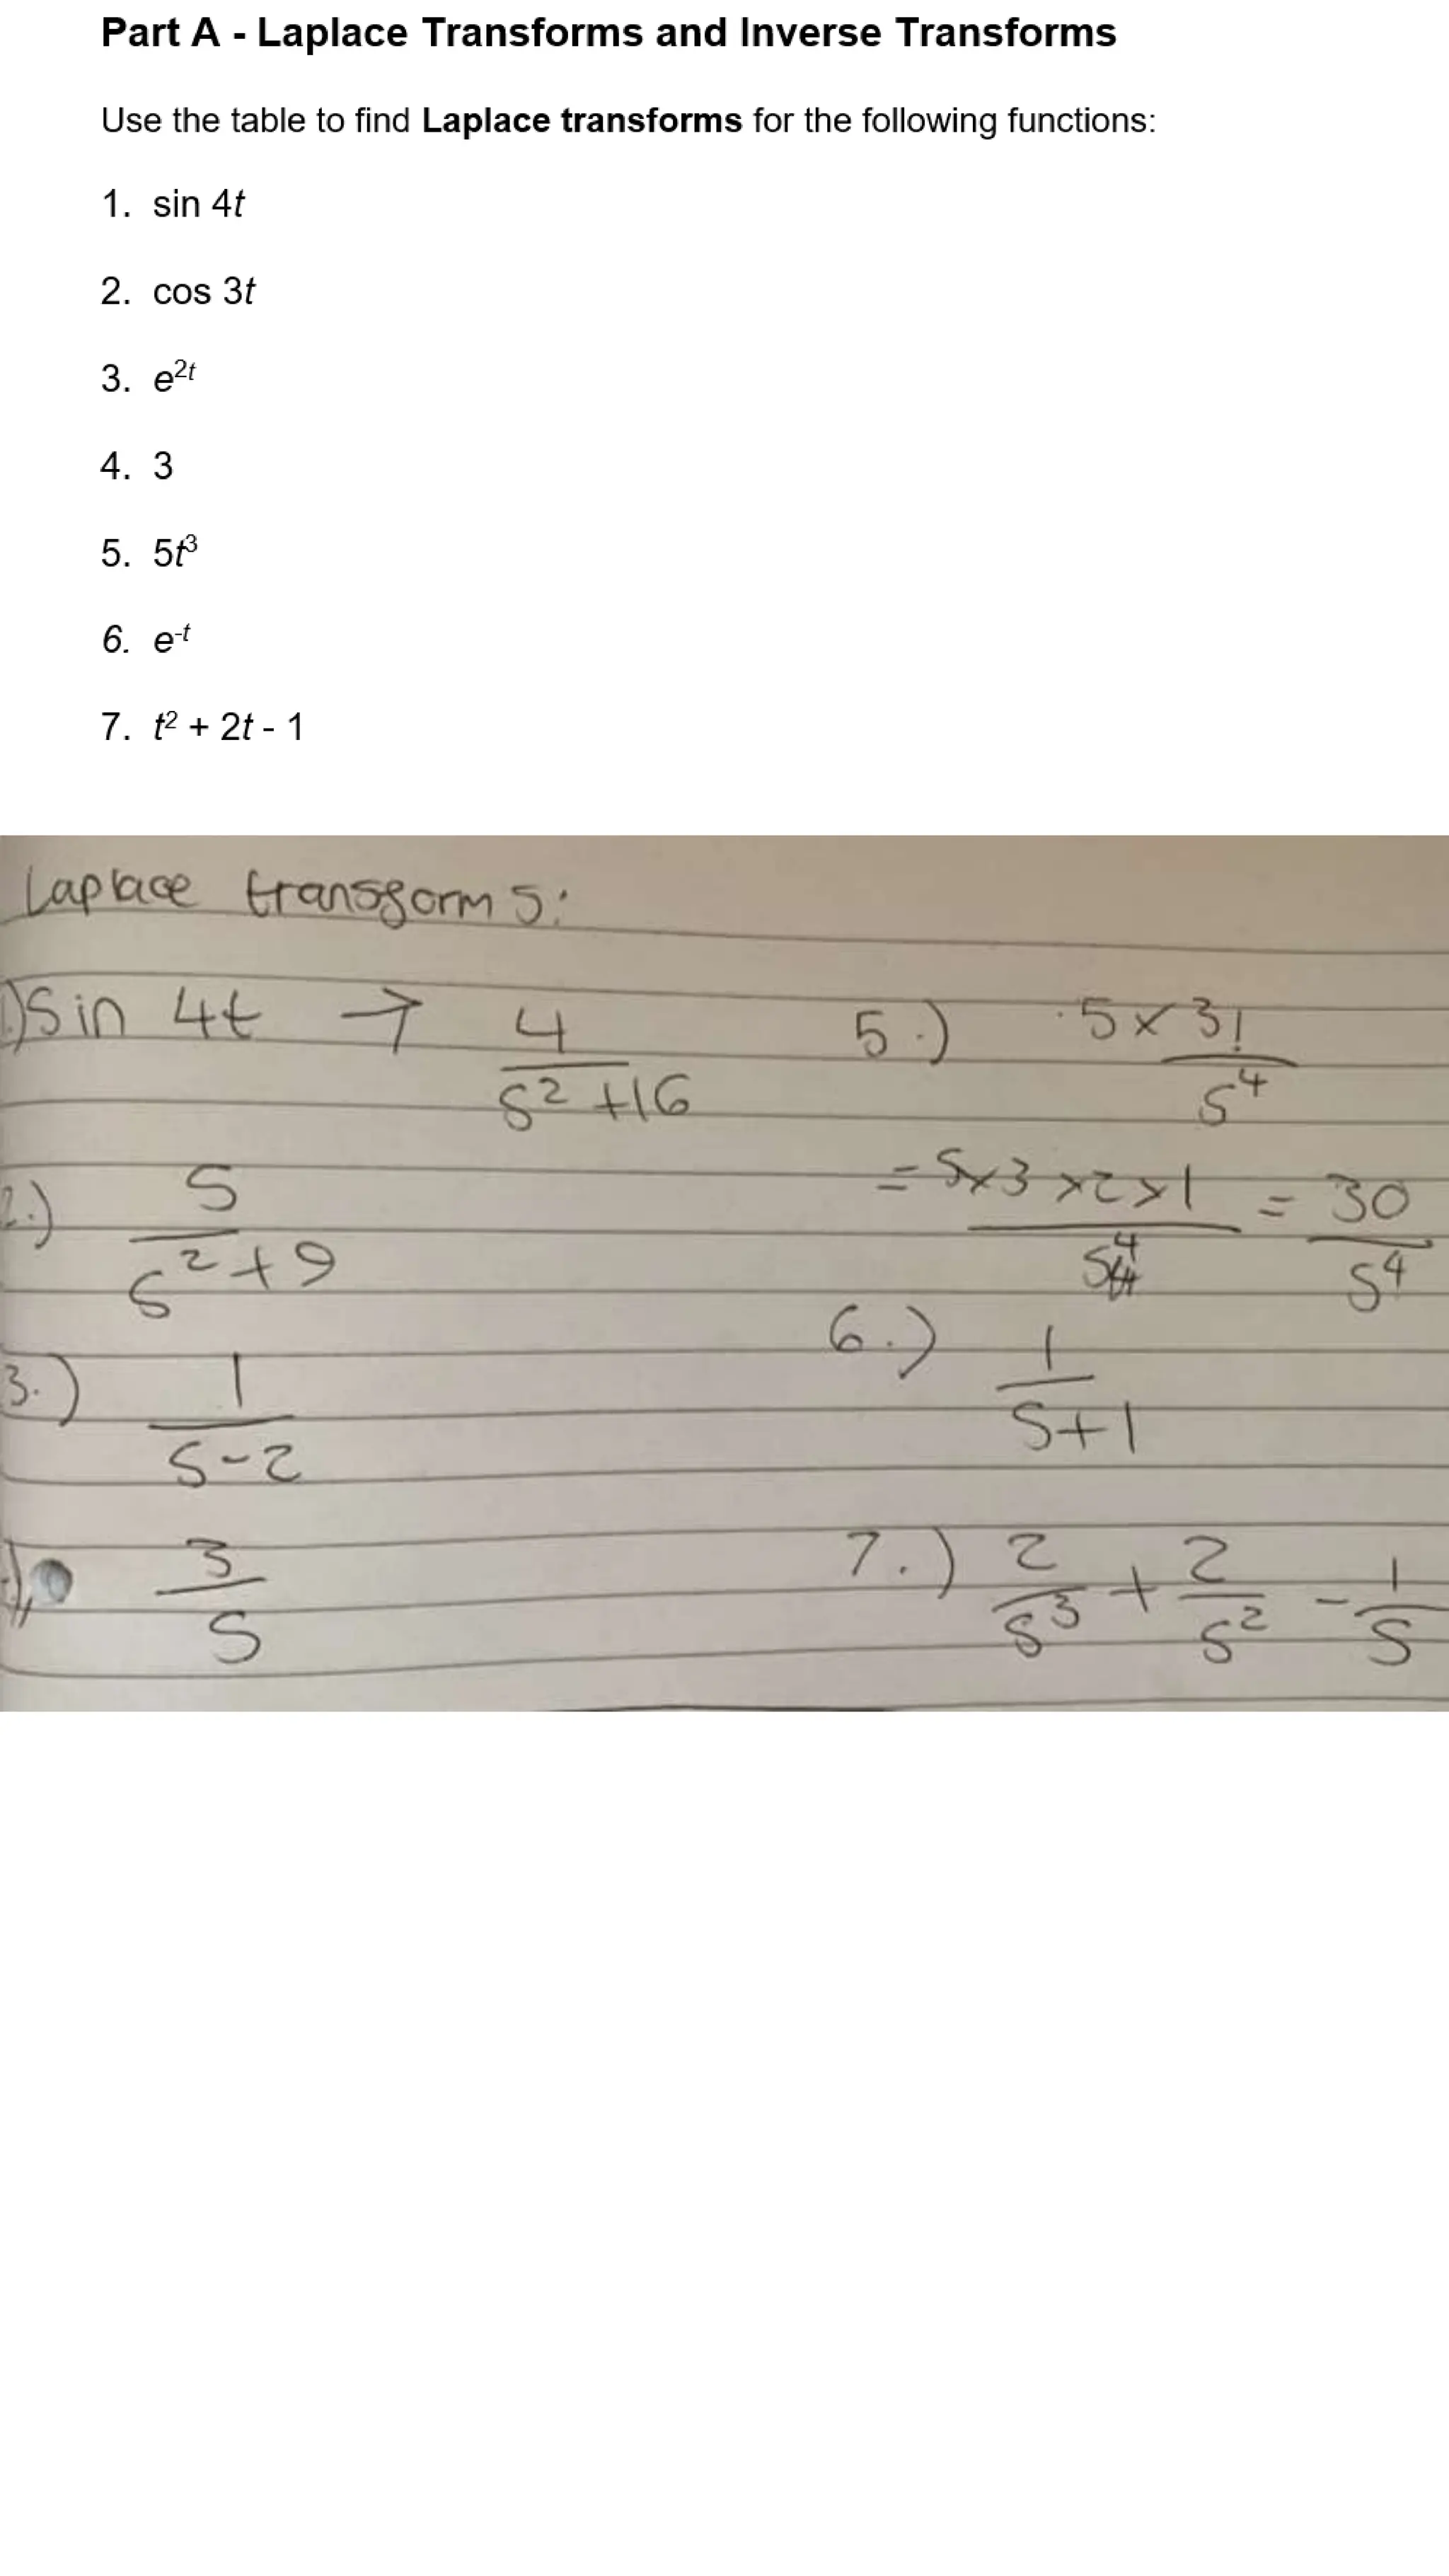 Part A - Laplace Transforms and Inverse Transforms
Use the table to find Laplace transforms for the following functions:
1. sin 4t
2. cos 3t
3. e^2t
4. 3
5. 5t^3
6. e^-t
7. t^2 + 2t - 1
Laplace transforms:
1.) Sin 4t → 4/(s^2 + 16)
2.) s/(s^2 + 9)
3.) 1/(s-2)
3/s
5.) 5 x 3!/s^4
= 5x3x2x1/s^4 = 30/s^4
6.) 1/(s+1)
7.) 2/s^3 + 2/s^2 - 1/s